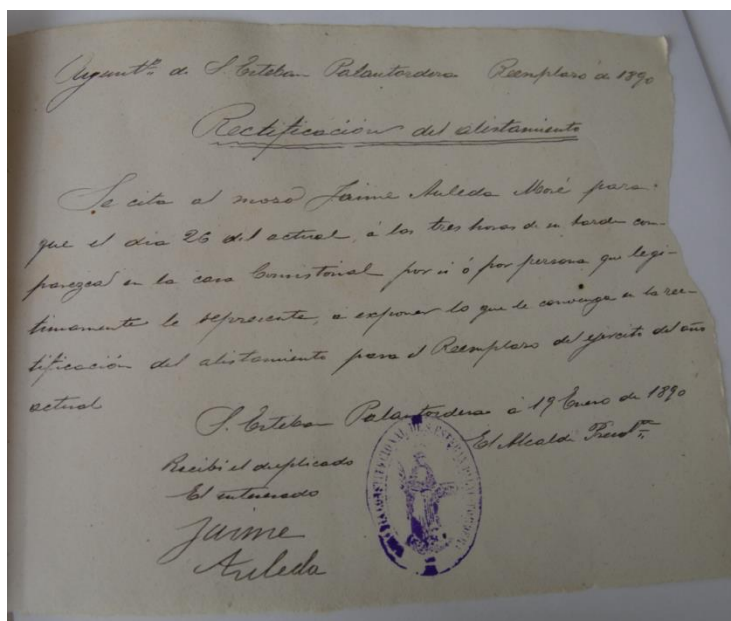 Ayunt.º de S. Esteban Palautordera Reemplazo de 1890
Rectificacion del alistamiento
Se cita al mozo Jaime Auleda Moré para
que el dia 26 del actual, á las tres horas de su tarde com-
parezca en la casa Consistorial por si ó por persona que legi-
timamente le represente, a exponer lo que le convenga en la rec-
tificación del alistamiento para el Reemplazo del ejercito del año
actual
S. Esteban Palautordera á 19 Enero de 1890
El Alcalde Presid.te
Recibi el duplicado
El interesado
Jaime
Auleda
CONSTITUCIONAL DE S. ESTEBAN